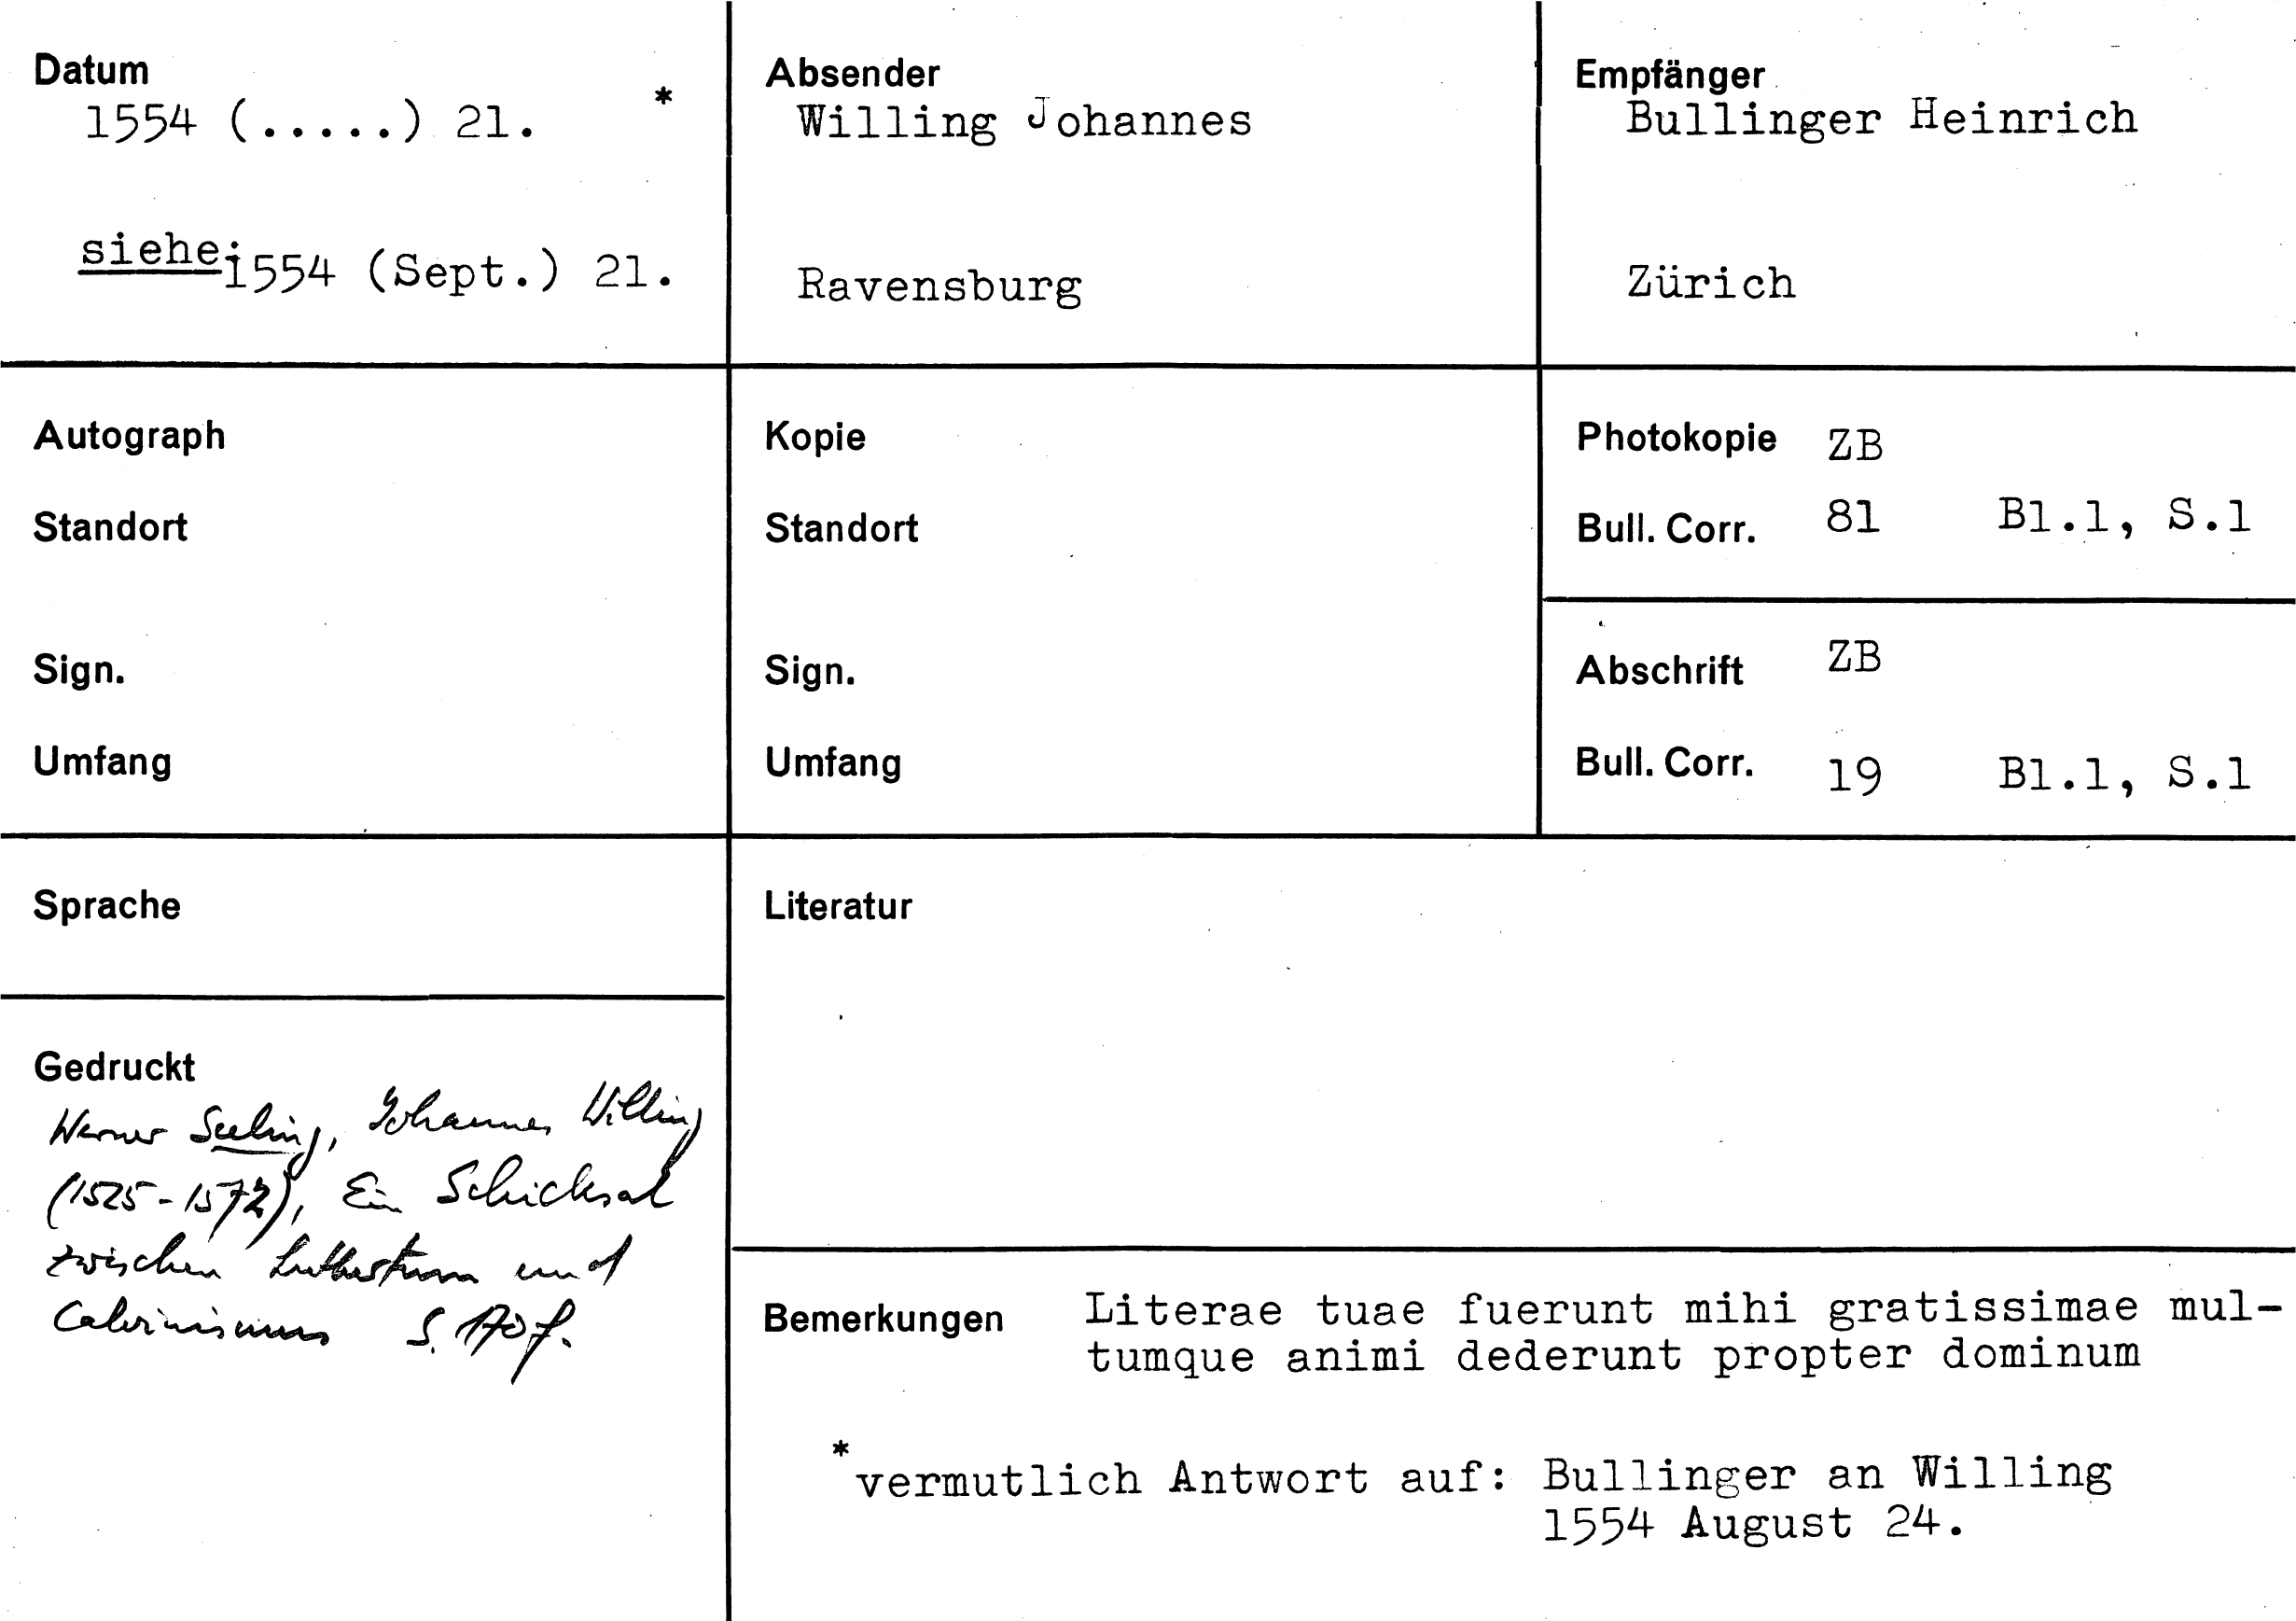 Datum
1554 (.....) 21. *
siehe:
1554 (Sept.) 21.
Absender
Willing Johannes
Ravensburg
Empfänger
Bullinger Heinrich
Zürich
Autograph
Standort
Sign.
Umfang
Kopie
Standort
Sign.
Umfang
Photokopie ZB
Bull. Corr. 81 Bl.1, S.1
Abschrift ZB
Bull. Corr. 19 Bl.1, S.1
Sprache
Gedruckt
Werner Seeling, Johannes Willing
(1525-1572), Ein Schicksal
zwischen Luthertum und
Calvinismus S. 170 f.
Literatur
Bemerkungen Literae tuae fuerunt mihi gratissimae mul-
tumque animi dederunt propter dominum
* vermutlich Antwort auf: Bullinger an Willing
1554 August 24.